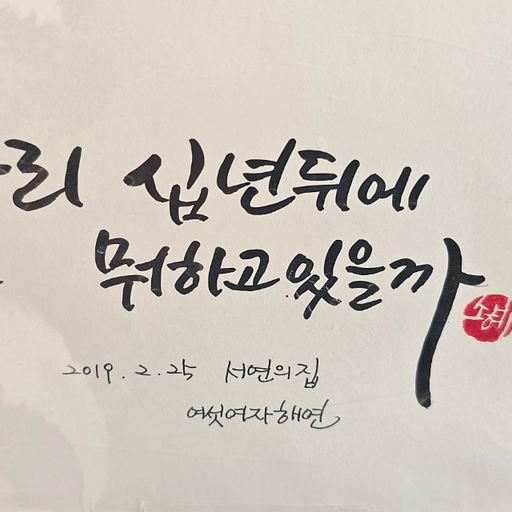 리 십년뒤에
뭐하고있을까
2019. 2. 25 서연의집
여섯여자해연